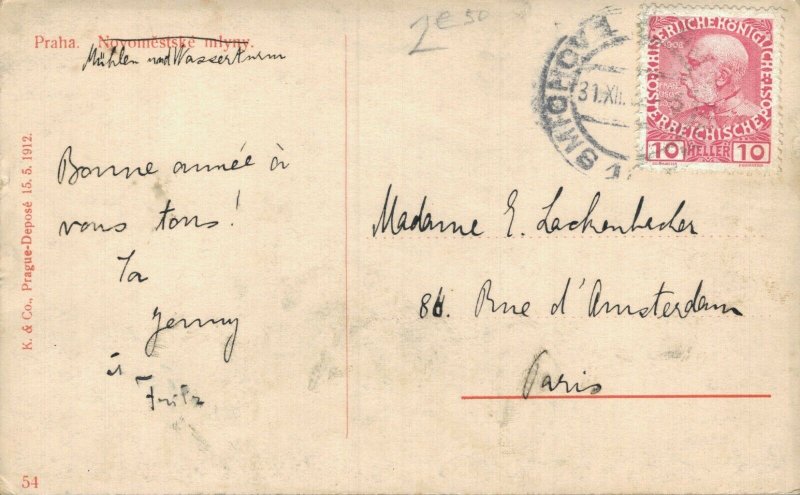 2e50
Praha. Novoměstské mlyny.
Mühlen und Wasserturm
K. & Co., Prague-Deposé 15. 5. 1912.
SMICHOV 1
31.XII.
1908
KAISERLICHE KÖNIGLICHE
ÖSTERREICHISCHE POST
10 HELLER 10
Bonne année à
vous tous!
Ta
Jenny
Fritz
Madame E. Lackenbacher
84. Rue d'Amsterdam
Paris
54